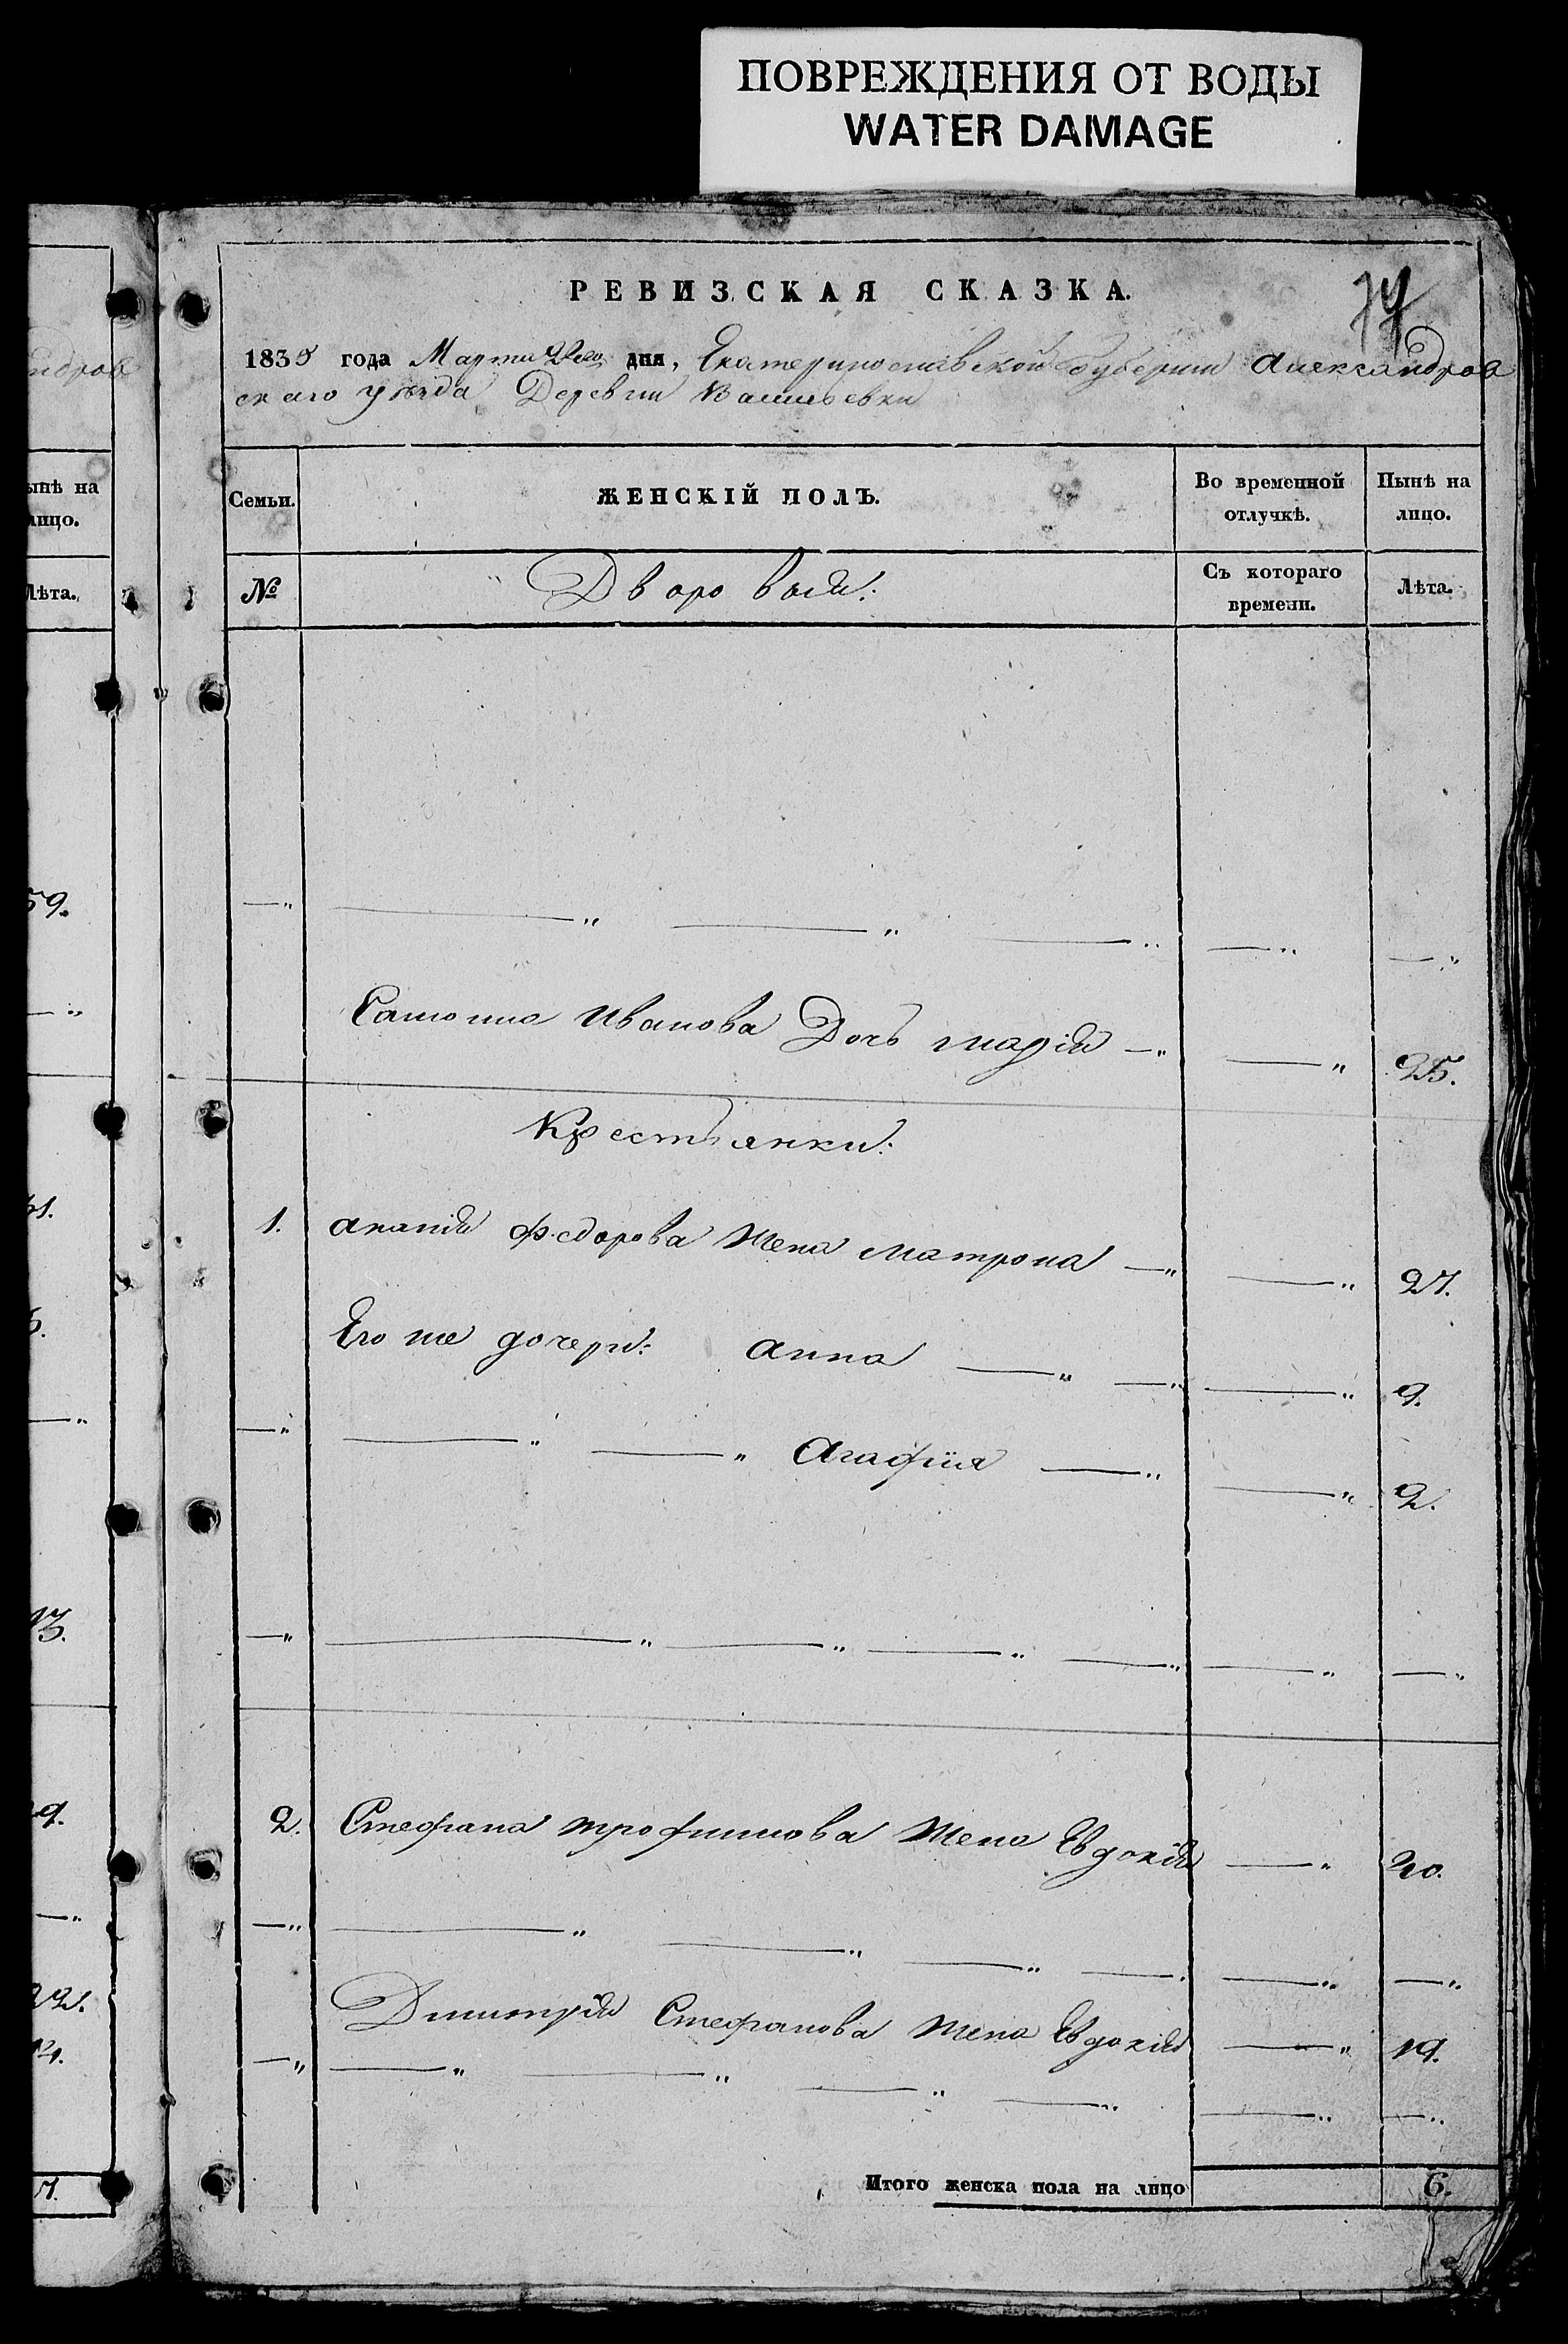 ПОВРЕЖДЕНИЯ ОТ ВОДЫ
WATER DAMAGE
ндров
ынѣ на
лицо.
Лѣта.
59.
13.
9.
22.
РЕВИЗСКАЯ СКАЗКА.
1835 года Марта дня, Екатеринославской Губернии Александров
скаго уѣзда Деревни Васильевки
Семьи. ЖЕНСКІЙ ПОЛЪ. Во временной отлучкѣ. Нынѣ на лицо.
№ Дворовыя: Съ котораго времени. Лѣта.
Иванова Дочь марія 25.
Крестьянки:
1. анания Федорова Жена Матрона 27.
Его же дочери: анна 9.
Агафія 2.
2. Стефана трофимова Жена Евдокія 20.
Дмитрия Стефанова Жена Евдокия 19.
Итого женска пола на лицо 6.